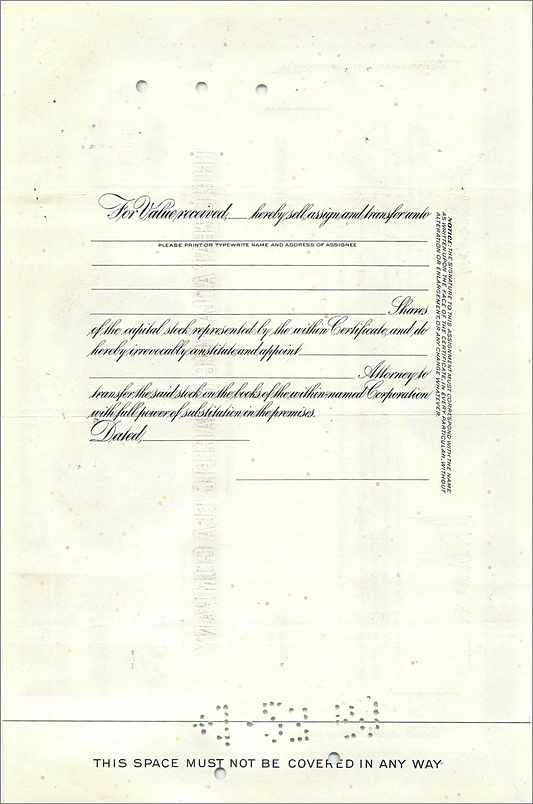 For Value received, ___ hereby sell, assign and transfer unto
PLEASE PRINT OR TYPEWRITE NAME AND ADDRESS OF ASSIGNEE
Shares
of the capital stock represented by the within Certificate, and do
hereby irrevocably constitute and appoint
Attorney to
transfer the said stock on the books of the within-named Corporation
with full power of substitution in the premises.
Dated,
NOTICE: THE SIGNATURE TO THIS ASSIGNMENT MUST CORRESPOND WITH THE NAME
AS WRITTEN UPON THE FACE OF THE CERTIFICATE, IN EVERY PARTICULAR, WITHOUT
ALTERATION OR ENLARGEMENT, OR ANY CHANGE WHATEVER.
THIS SPACE MUST NOT BE COVERED IN ANY WAY